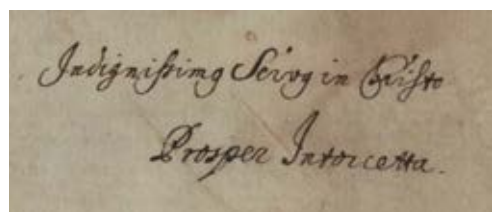 Indignissimg Servg in Christo
Prosper Intorcetta.